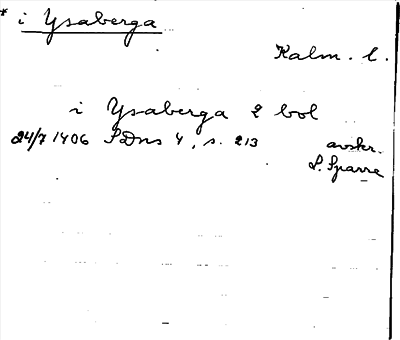 * i Ysaberga
Kalm. l.
i Ysaberga 2 bol
24/7 1406 SDns 4, s. 213 avskr.
L. Sparre